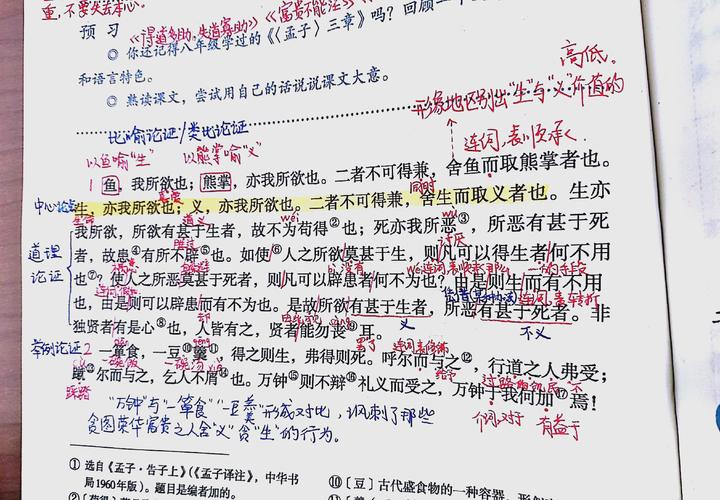 重,不要失去本心。
预 习 《得道多助,失道寡助》《富贵不能淫》
◎ 你还记得八年级学过的《〈孟子〉三章》吗?回顾
和语言特色。
◎ 熟读课文,尝试用自己的话说说课文大意。
高低。
形象地区别出"生"与"义"价值的
比喻论证/类比论证
连词,表顺承
以鱼喻"生" 以熊掌喻"义"
1 鱼,我所欲也;熊掌,亦我所欲也。二者不可得兼,舍鱼而取熊掌者也。
同时
中心论点
生,亦我所欲也;义,亦我所欲也。二者不可得兼,舍生而取义者也。生亦
道义
我所欲,所欲有甚于生者,故不为苟得②也;死亦我所恶③,所恶有甚于死
讨厌
道理
论证
者,故患④有所不辟⑤也。如使⑥人之所欲莫甚于生,则凡可以得生者何不用
没有
也⑦?使人之所恶莫甚于死者,则凡可以辟患者何不为也?由是则生而有不用
也,由是则可以辟患而有不为也。是故所欲有甚于生者,所恶有甚于死者。非
义 不义
独贤者有是心⑧也,人皆有之,贤者能勿丧⑨耳。
举例论证
2 一箪食,一豆⑩羹⑪,得之则生,弗得则死。呼尔而与之⑫,行道之人弗受;
给予
蹴⑬尔而与之,乞人不屑⑭也。万钟⑮则不辩⑯礼义而受之,万钟于我何加⑰焉!
踩踏
介词,对于 有益于
"万钟"与"一箪食""一豆羹"形成对比,讽刺了那些
贪图荣华富贵之人舍"义"贪"生"的行为。
① 选自《孟子·告子上》(《孟子译注》,中华书
局1960年版)。题目是编者加的。
⑩〔豆〕古代盛食物的一种容器,形似